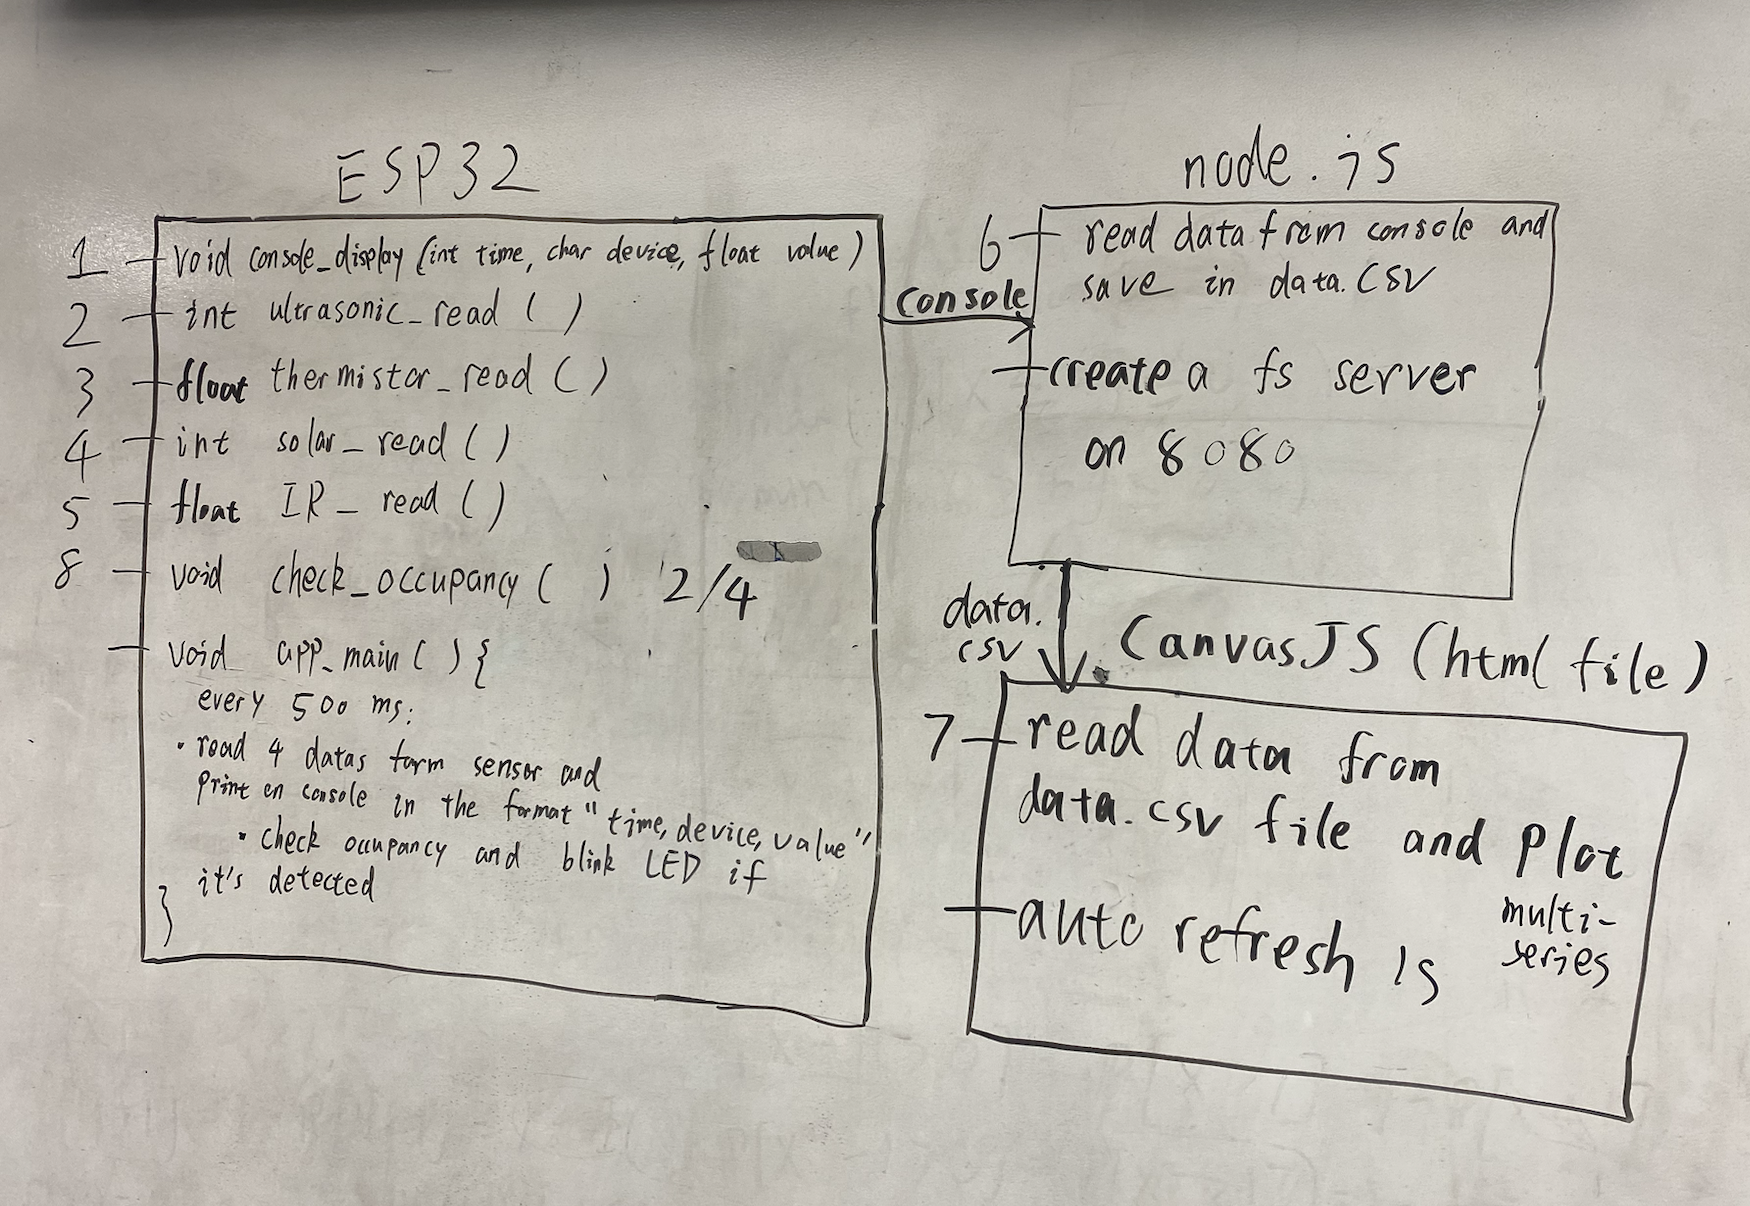 ESP32
1 void console_display (int time, char device, float value)
2 int ultrasonic_read ( )
3 float thermistor_read ( )
4 int solar_read ( )
5 float IR_read ( )
8 void check_occupancy ( ) 2/4
void app_main ( ) {
every 500 ms:
• read 4 datas form sensor and
print on console in the format "time, device, value"
• check occupancy and blink LED if
it's detected
}
console
node.js
6 read data from console and
save in data.csv
create a fs server
on 8080
data.
csv
CanvasJS (html file)
7 read data from
data.csv file and plot
multi-
series
auto refresh 1s